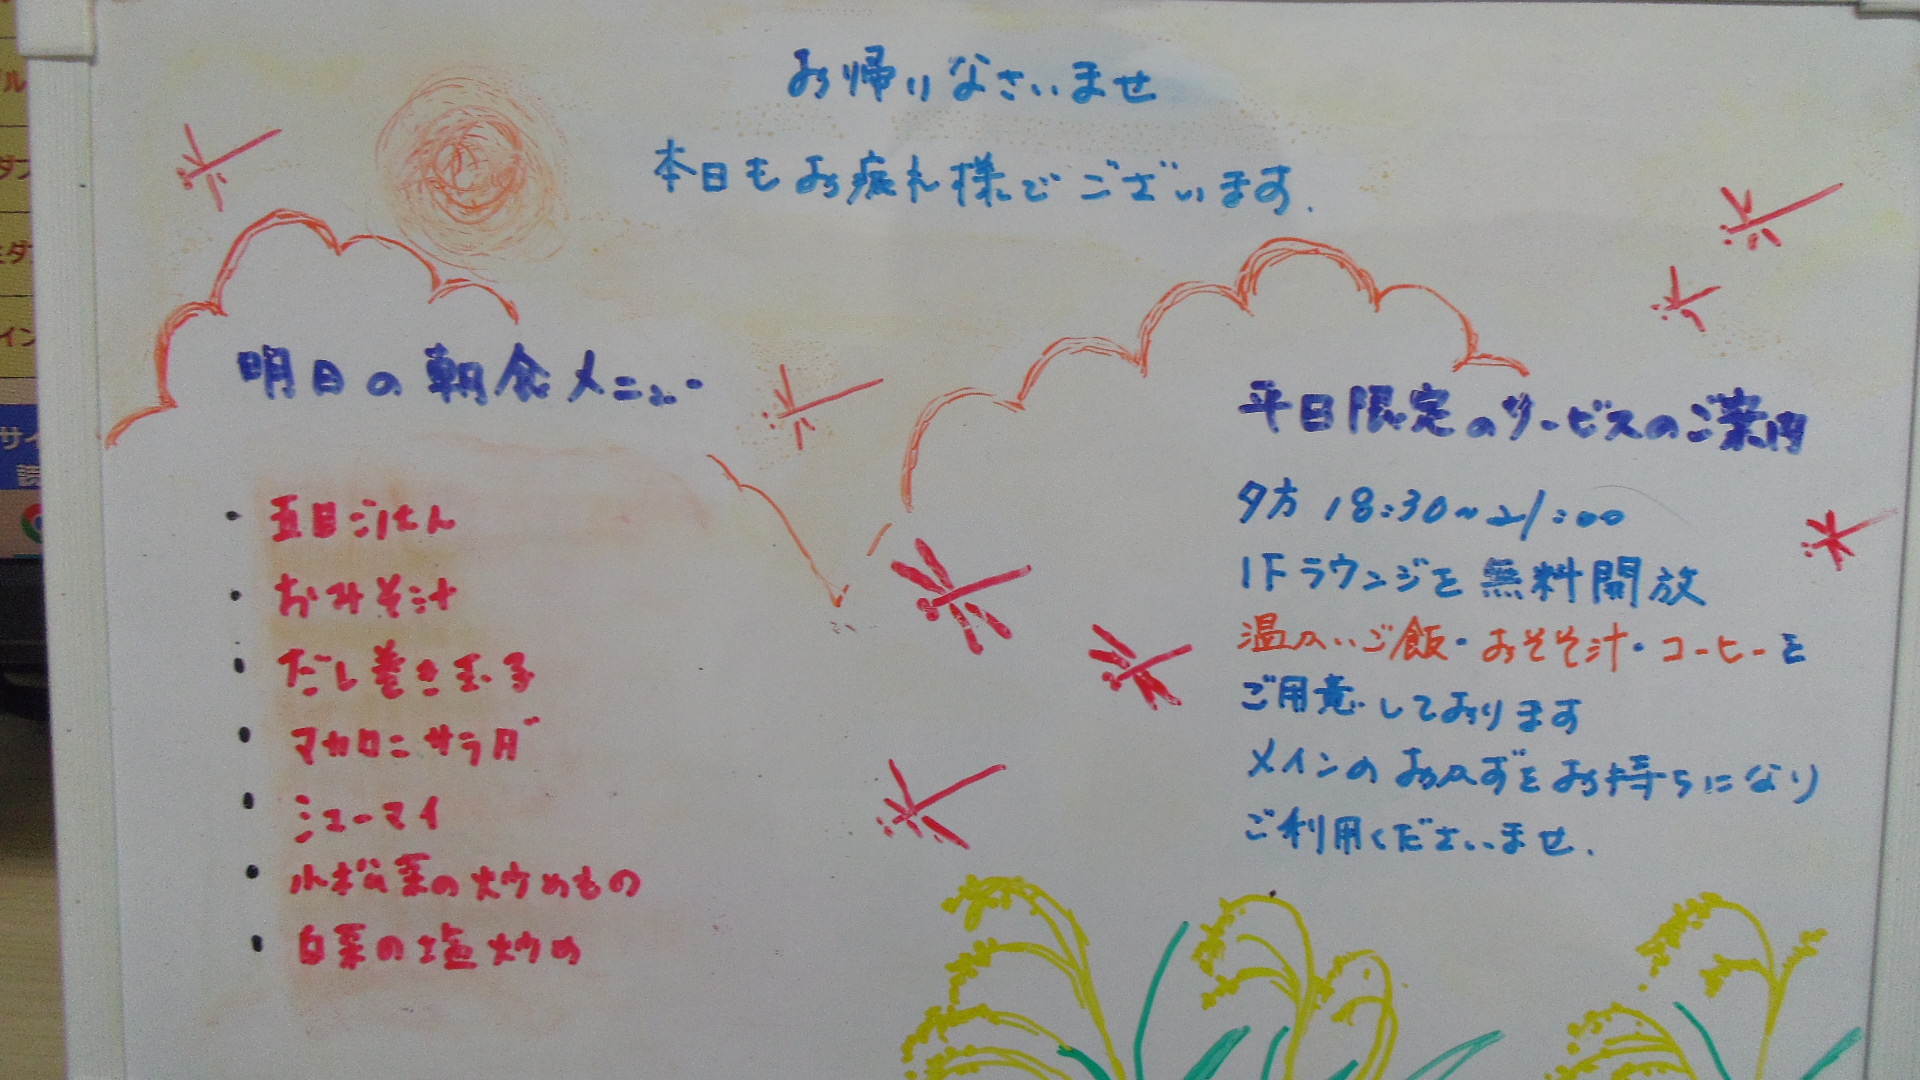 お帰りなさいませ
本日もお疲れ様でございます.
明日の朝食メニュー
・五目ごはん
・おみそ汁
・だし巻き玉子
・マカロニサラダ
・シューマイ
・小松菜の炒めもの
・白菜の塩炒め
平日限定のサービスのご案内
夕方 18:30~21:00
1Fラウンジを無料開放
温かいご飯・おそそ汁・コーヒーを
ご用意しております
メインのおかずをお持ちになり
ご利用くださいませ.
ル
ダ
ダ
イン
サイ
読